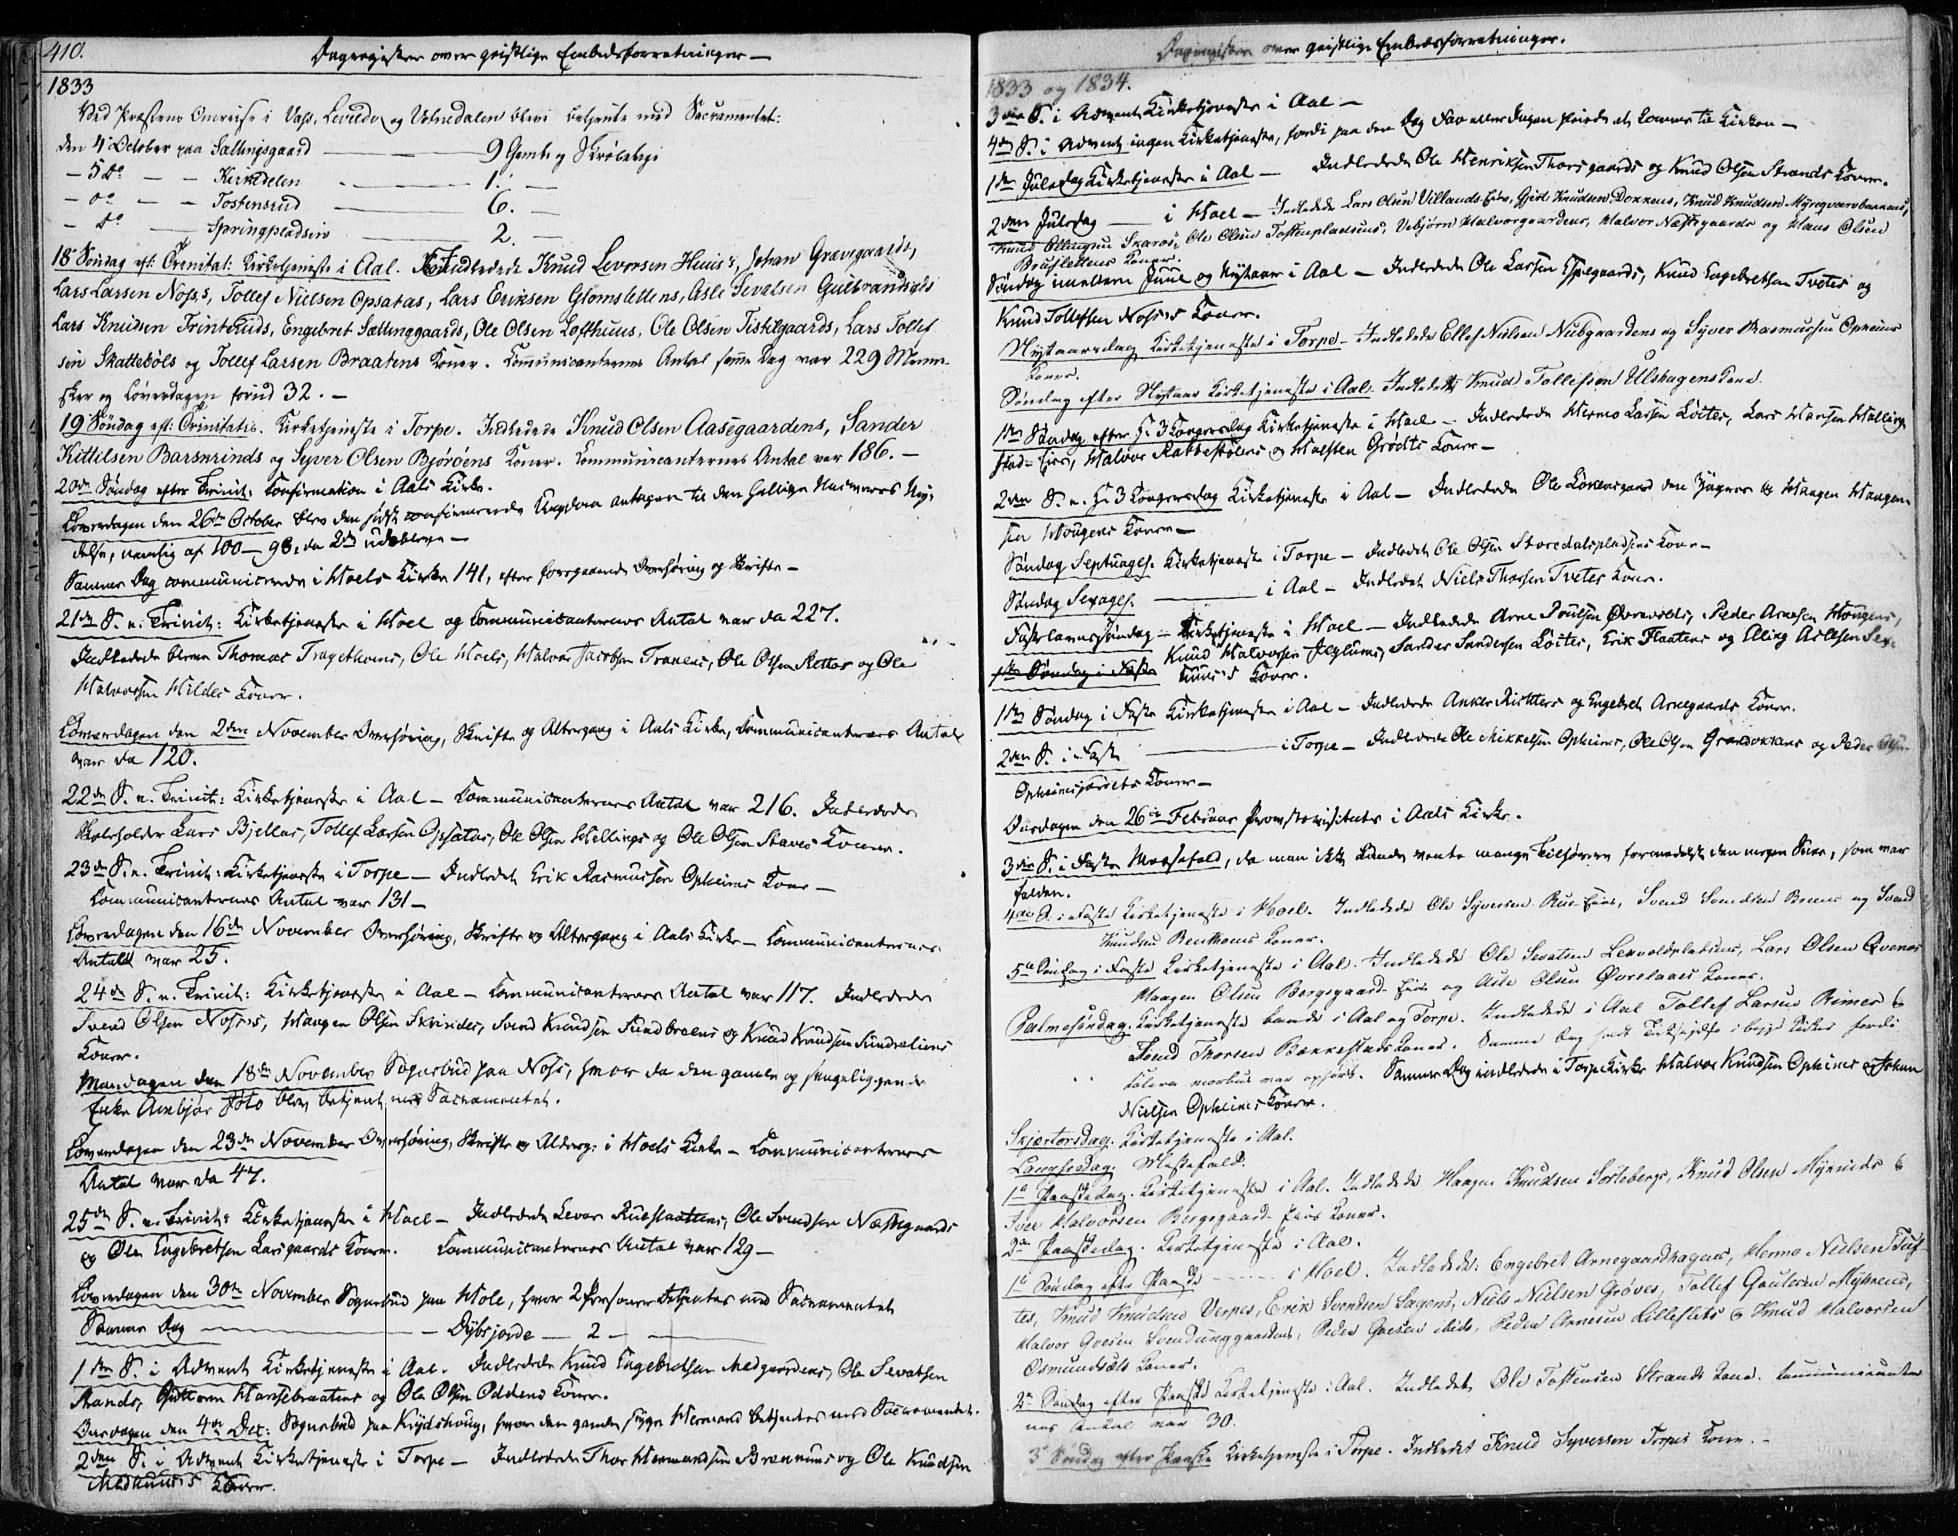 410.
Dagregister over geistlige Embedsforretninger —
1833
Ved Præstens Omreise i Vats, Leveld og Votnedalen blev betjente med Sacramentet:
den 4 October paa Sættingsgaard — 9 Gamle og Skrøbelige
— 5 Do — — Kirkedelen — 1. —
— do — — Tostensrud — 6. —
— do — Springpladsen — 2. —
18 Søndag eft: Trenitat: Kirketjeneste i Aal. Indledede Knud Levorsen Huus's, Johan Grævsgaards,
Lars Larsen Noss's, Tollef Nielsen Opsatas, Lars Eriksen Glomslettens, Asle Sevatsen Gulbrandsgds
Lars Knudsen Trinteruds, Engebret Sættinggaards, Ole Olsen Lofthuus, Ole Olsen Tistilgaards, Lars Tollef
sen Skattebøls og Tollef Larsen Braatens Koner. Kommunicanternes Antal samme Dag var 229 Menne-
sker og Løverdagen forud 32. —
19 Søndag eft: Trinitatis. Kirketjeneste i Torpe. Indledede Knud Olsen Aasegaardens, Sander
Kittilsen Barskrinds og Syver Olsen Bjørøens Koner. Communicanternes Antal var 186. —
20de Søndag efter Trinit: Confirmation i Aals Kirke.
Løverdagen den 26de October blev den sidst confirmerede Ungdom antagen til den hellige Nadveres Ny-
delse, nemlig af 100 — 98, da 2de udebleve —
Samme Dag communicerede i Hoels Kirke 141, efter foregaaende Overhøring og Skrifte —
21de S. e. Trinit: Kirketjeneste i Hoel og Communicanternes Antal var da 227.
Indledede bleve Thomas Tragethons, Ole Hoels, Halvor Jacobsen Tranens, Ole Olsen Rettos og Ole
Halvorsen Hildes Koner.
Løverdagen den 2den November Overhøring, Skrifte og Altergang i Aals Kirke, Communicanternes Antal
var da 120.
22de S. e. Trinit: Kirketjeneste i Aal — Communicanternes Antal var 216. Indledede
Skoleholder Lars Bjellas, Tollef Larsen Opsatas, Ole Olsen Hellings og Ole Olsen Staves Koner.
23de S. e. Trinit: Kirketjeneste i Torpe — Indledet Erik Rasmussen Opheims Kone —
Communicanternes Antal var 131 —
Løverdagen den 16de November Overhøring, Skrifte og Altergang i Aals Kirke — Communicanternes
Antal var 25.
24de S. e. Trinit: Kirketjeneste i Aal — Communicanternes Antal var 117. Indledede
Svend Olsen Noss's, Haagen Olsen Skrindes, Svend Knudsen Sundbroens og Knud Knudsen Sundreliens
Koner.
Mandagen den 18de November Sognebud paa Noss, hvor da den gamle og sengeliggende
Enke Ambjør Foto blev betjent med Sacramentet.
Løverdagen den 23de November Overhøring, Skrifte og Alterg: i Hoels Kirke — Communicanternes
Antal var da 47.
25de S. e. Trinit: Kirketjeneste i Hoel — Indledede Levor Rueslaattens, Ole Svendsen Næstegaards
og Ole Engebretsen Larsgaards Koner. Communicanternes Antal var 129 —
Løverdagen den 30te November Sognebud paa Hole, hvor 2 Personer betjentes med Sacramentet
Samme Dag — — Dybsjorde — 2 — —
1ste S. i Advent Kirketjeneste i Aal. Indledede Knud Engebretsen Medgaardens, Ole Sevatsen
Strands, Guttorm Hansebraatens og Ole Olsen Oddens Koner.
Onsdagen den 4de Dec: Sognebud paa Krydshoug, hvor den gamle syge Hermand betjentes med Sacramentet.
2den S. i Advent Kirketjeneste i Torpe — Indledede Thor Hermandsen Brennens og Ole Knudsen
Medhuus's Koner.
Dagregister over geistlige Embedsforretninger.
1833 og 1834.
3die S. i Advent Kirketjeneste i Aal —
4de S. i Advent ingen Kirketjeneste, fordi paa den Dag Faa eller Ingen pleiede at komme til Kirken —
1ste Juledag Kirketjeneste i Aal — Indledede Ole Henriksen Thorsgaards og Knud Olsen Strands Koner.
2den Juledag — i Hoel — Indledede Lars Olsen Villands-Eie, Gjert Knudsen Dokkens, Knud Knudsen Myregvarvbakkens,
Knud Ellingsen Skaros, Ole Olsen Tostenpladsens, Vebjørn Halvorgaardens, Halvor Næstegaards og Hans Olsen
Bruslettens Koner.
Søndag imellem Juul og Nytaar i Aal — Indledede Ole Larsen Espegaards, Knud Engebretsen Tvetes og
Knud Tollefsen Noss's Koner.
Nytaarsdag Kirketjeneste i Torpe — Indledede Ellef Nielsen Nubgaardens og Syver Rasmusen Opheims
Koner.
Søndag efter Nytaar Kirketjeneste i Aal. Indledet Knud Tollefsen Ulshagens Kone
1ste Søndag efter H. 3 Kongersdag Kirketjeneste i Hoel — Indledede Hermo Larsen Løttes, Lars Hansen Halling-
stad-Eies, Halvor Rotbestølens og Halsten Grøtts Koner —
2den S. e. H. 3 Kongersdag Kirketjeneste i Aal — Indledede Ole Lønnegaard den Yngres og Haagen Haagen-
sen Hougens Koner —
Søndag Septuages. Kirketjeneste i Torpe — Indledet Ole Olsen Storedalspladsens Kone —
Søndag Sexages. — i Aal — Indledet Niels Thorsen Tvetes Kone.
Fastelavnssøndag — Kirketjeneste i Hoel — Indledede Arne Poulsen Øvrevolds, Peder Arnesen Hougens,
Knud Halvorsen Islglums, Sander Sandersen Løttes, Erik Flaatens og Eling Aslesen
1ste Søndag i Faste huus's Koner.
1ste Søndag i Faste Kirketjeneste i Aal — Indledede Anker Richters og Engebret Arnegaards Koner.
2den S. i Faste — i Torpe — Indledede Ole Mikkelsen Opheims, Ole Olsen Grandokkens og Peder Olsen
Opheimsjordets Koner —
Onsdagen den 26de Februar Provstevisitats i Aals Kirke.
3die S. i Faste Messefald, da man ikke kunde vente mange Tilhørere formedelst den megen Snee, som var
falden.
4de S. i Faste Kirketjeneste i Hoel. Indledede Ole Syversen Rue-Eies, Svend Svendsen Bruns og Svend
Knudsen Benthons Koner.
5te Søndag i Faste Kirketjeneste i Aal. Indledede Ole Sevatsen Leevoldpladsens, Lars Olsen Qvenos
Haagen Olsen Bergsgaard-Eies og Asle Olsen Øvrelaaes Koner.
Palmesøndag. Kirketjeneste baade i Aal og Torpe. Indledede i Aal Tollef Larsen Rimes &
Trond Thorsen Bækkestads Koner. Samme Dag holdt Takkefest i begge Kirker fordi
Kolera morbus var ophørt. Samme Dag indledede i Torpe Kirke Halvor Knudsen Opheims og Johan
Nielsen Opheims Koner.
Skjærtorsdag. Kirketjeneste i Aal.
Langfredag. Messefald.
1e Paaskedag. Kirketjeneste i Aal. Indledede Haagen Knudsen Sørlebergs, Knud Olsen Myruds &
Iver Halvorsen Bergsgaard-Eies Koner.
2den Paaskedag. Kirketjeneste i Aal.
1e Søndag efter Paaske — i Hoel. Indledede: Engebret Arnegaardhagens, Henno Nielsen Tuf-
tes, Knud Knudsen Vespes, Erik Svendsen Sagens, Niels Nielsen Grøves, Tollef Gautesen Myhrens,
Halvor Goesen Svendunggaardens, Peder Goesen ibids, Peder Arnesen Lilleslets & Knud Halvorsen
Osmundsæts Koner.
2n Søndag efter Paaske Kirketjeneste i Aal. Indledet Ole Tostensen Strands Kone. Communicanter
nes Antal var 30.
3e Søndag efter Paaske Kirketjeneste i Torpe. Indledet Knud Syversen Torpes Kone. —